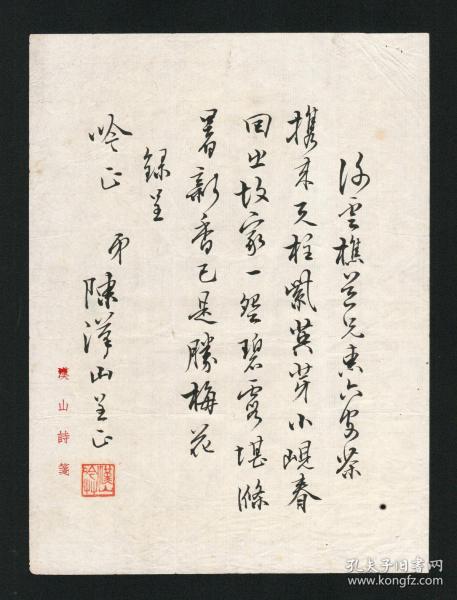 謝雲樵兄惠六安茶
攜来天柱紫英芽小峴春
回出故家一盌碧露堪滌
暑新香已是勝梅花
錄呈
吟正 弟陳漢山呈正
漢山詩箋
孔夫子旧书网
www.kongfz.com